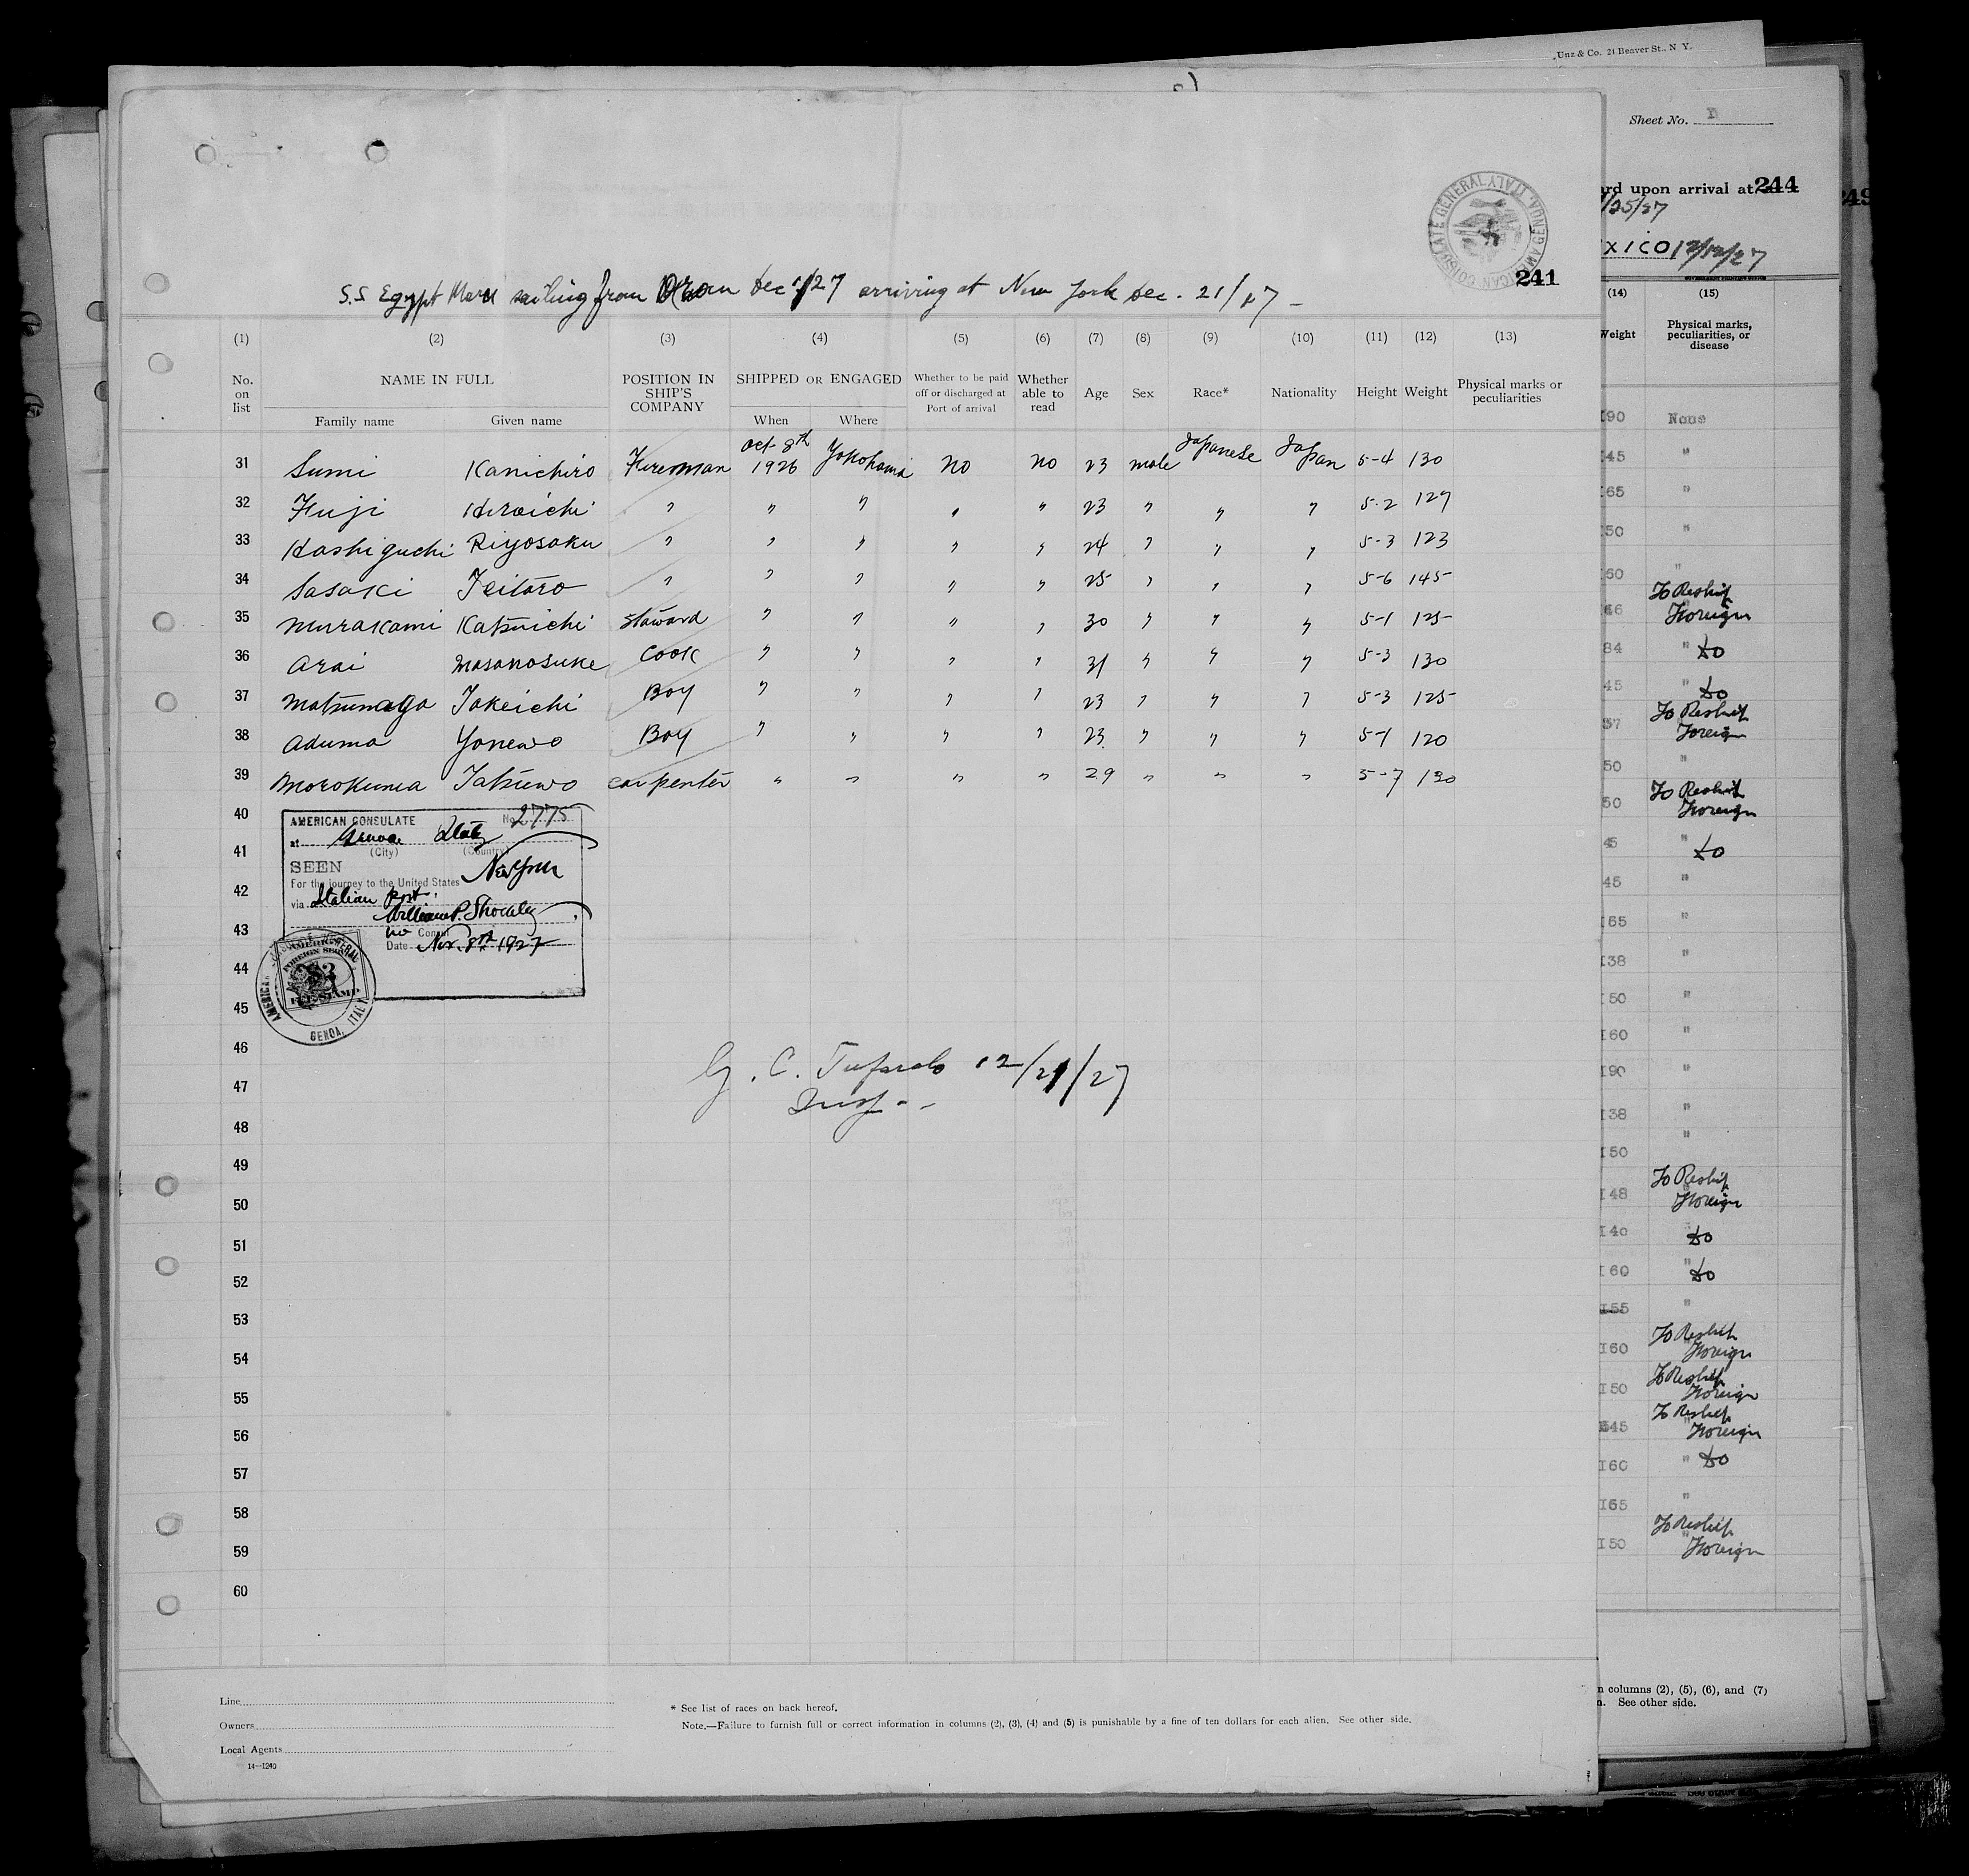 Unz & Co. 24 Beaver St., N. Y.
Sheet No.
ard upon arrival at 244
249
/25/27
XICO 12/12/27
AMERICAN CONSULATE GENERAL GENOA, ITALY
241
S.S Egypt Maru sailing from Oran Dec 1/27 arriving at New York Dec. 21/27 -
(1) (2) (3) (4) (5) (6) (7) (8) (9) (10) (11) (12) (13)
No. on list NAME IN FULL POSITION IN SHIP'S COMPANY SHIPPED OR ENGAGED Whether to be paid off or discharged at Port of arrival Whether able to read Age Sex Race* Nationality Height Weight Physical marks or peculiarities
Family name Given name When Where
31 Sumi Kanichiro Fireman Oct 8th 1926 Yokohama No No 23 male Japanese Japan 5-4 130
32 Fuji Hiroichi " " " " " 23 " " " 5-2 127
33 Hashiguchi Riyosaku " " " " " 24 " " " 5-3 123
34 Sasaki Teitaro " " " " " 25 " " " 5-6 145
35 Murakami Katsuichi Staward " " " " 30 " " " 5-1 125
36 Arai Masanosuke Cook " " " " 31 " " " 5-3 130
37 Matsunaga Takeichi Boy " " " " 23 " " " 5-3 125
38 Aduma Yonewo Boy " " " " 23 " " " 5-1 120
39 Morokuma Tatsuwo carpenter " " " " 29 " " " 5-7 130
40
41
42
43
44
45
46
47
48
49
50
51
52
53
54
55
56
57
58
59
60
AMERICAN CONSULATE No. 2775
at Genoa Italy
(City) (Country)
SEEN
For the journey to the United States
via Italian port.
William P. Shockley
Consul
Date Nov. 8th 1927
AMERICAN FOREIGN SERVICE
FEE STAMP
GENOA, ITALY
G. C. 12/21/27
Insp.
Line
Owners
Local Agents
14—1240
* See list of races on back hereof.
Note.—Failure to furnish full or correct information in columns (2), (3), (4) and (5) is punishable by a fine of ten dollars for each alien. See other side.
(14) (15)
Weight Physical marks, peculiarities, or disease
190 None
145 "
165 "
150 "
160 "
To Reship
Foreign
84 " do
45 " do
To Reship
57 Foreign
50 "
To Reship
50 Foreign
45 " do
45 "
165 "
138 "
150 "
160 "
190 "
138 "
150 "
To Reship
148 Foreign
140 do
160 " do
155 "
To Reship
160 Foreign
To Reship
150 Foreign
To Reship
145 Foreign
160 " do
165 "
To Reship
150 Foreign
n columns (2), (5), (6), and (7)
n. See other side.